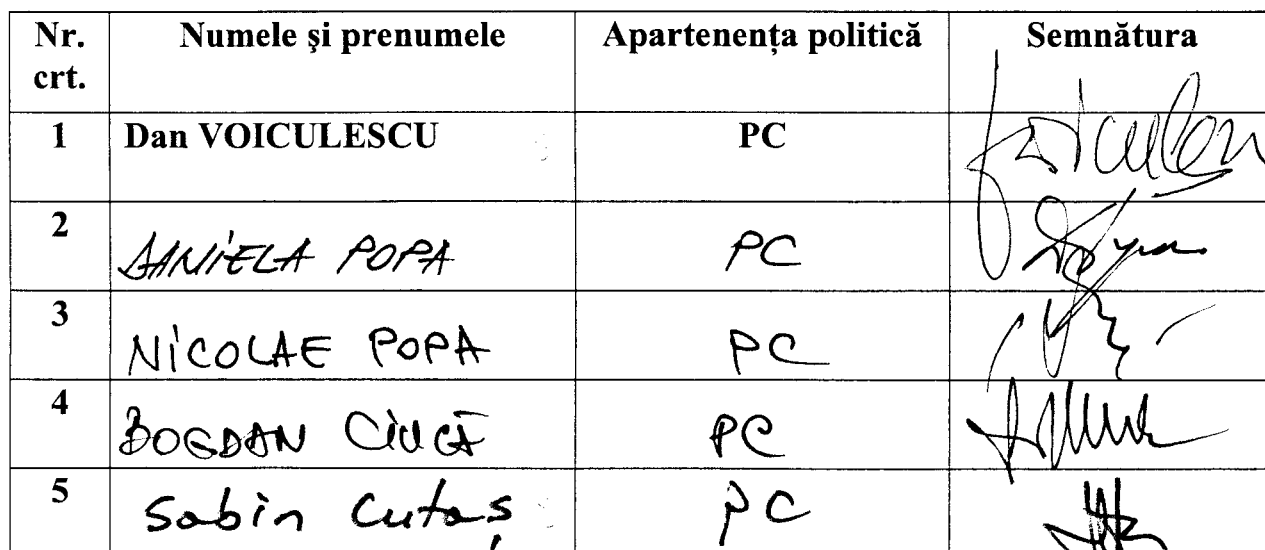 Nr. crt. Numele şi prenumele Apartenenţa politică Semnătura
1 Dan VOICULESCU PC
2 DANIELA POPA PC
3 NICOLAE POPA PC
4 BOGDAN CIUCĂ PC
5 Sabin Cutaș PC